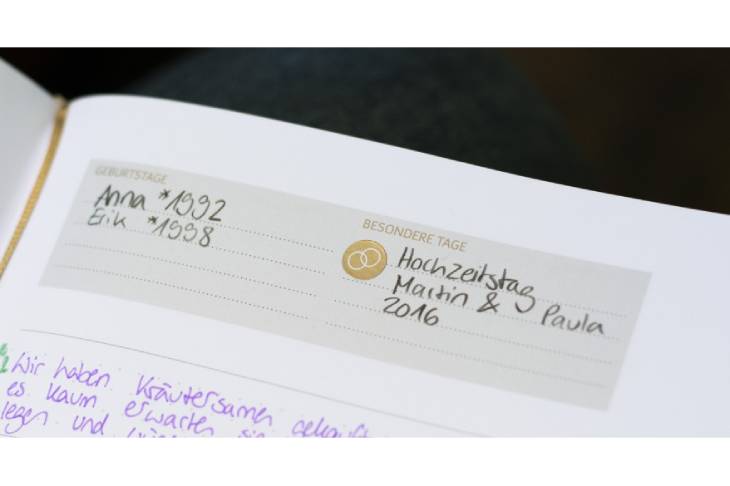 GEBURTSTAGE
Anna *1992
Erik *1998
BESONDERE TAGE
Hochzeitstag
Martin & Paula
2016
Wir haben Kräutersamen gekauft
es kaum erwarten sie
legen und